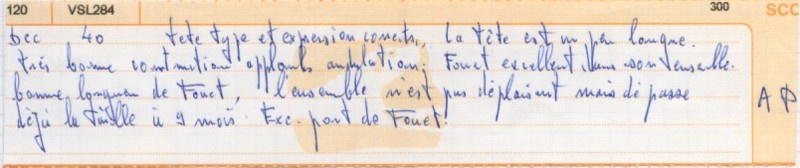 120 VSL284 300 SCC
Dec 40 tete type et expression corrects, La tête est un peu longue.
très bonne construction applombs angulation, Fouet excellent dans son ensemble.
bonne longueur de Fouet, l'ensemble n'est pas déplaisant mais dépasse
déjà la taille à 9 mois. Exc. port de Fouet.
A P